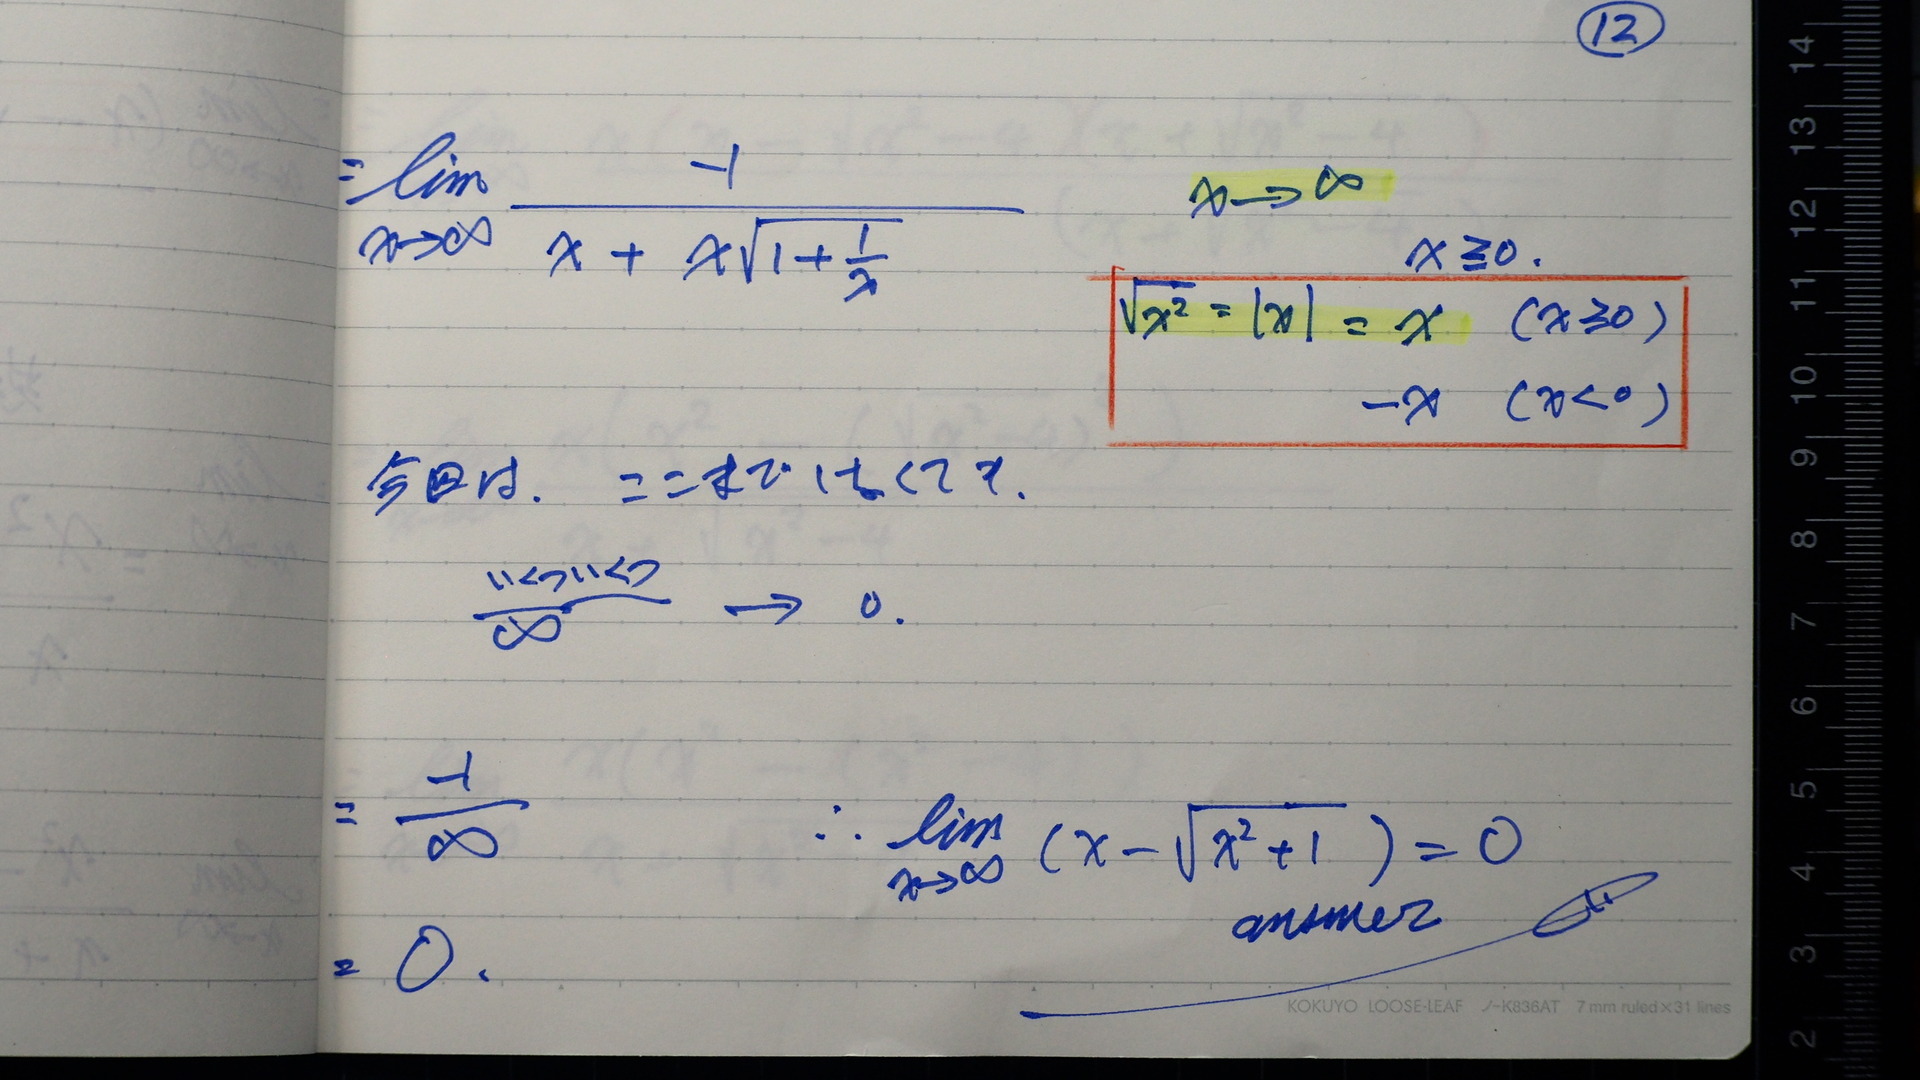 12
= lim x→∞ -1 / (x + x√(1 + 1/x))
x→∞
x ≧ 0.
√x² = |x| = x (x≧0)
-x (x<0)
今回は. ここまででいくて
いくついくつ / ∞ → 0.
= -1 / ∞
∴ lim x→∞ (x - √(x² + 1)) = 0
answer
= 0.
KOKUYO LOOSE-LEAF ノ-K836AT 7 mm ruled×31 lines
14
13
12
11
10
9
8
7
6
5
4
3
2